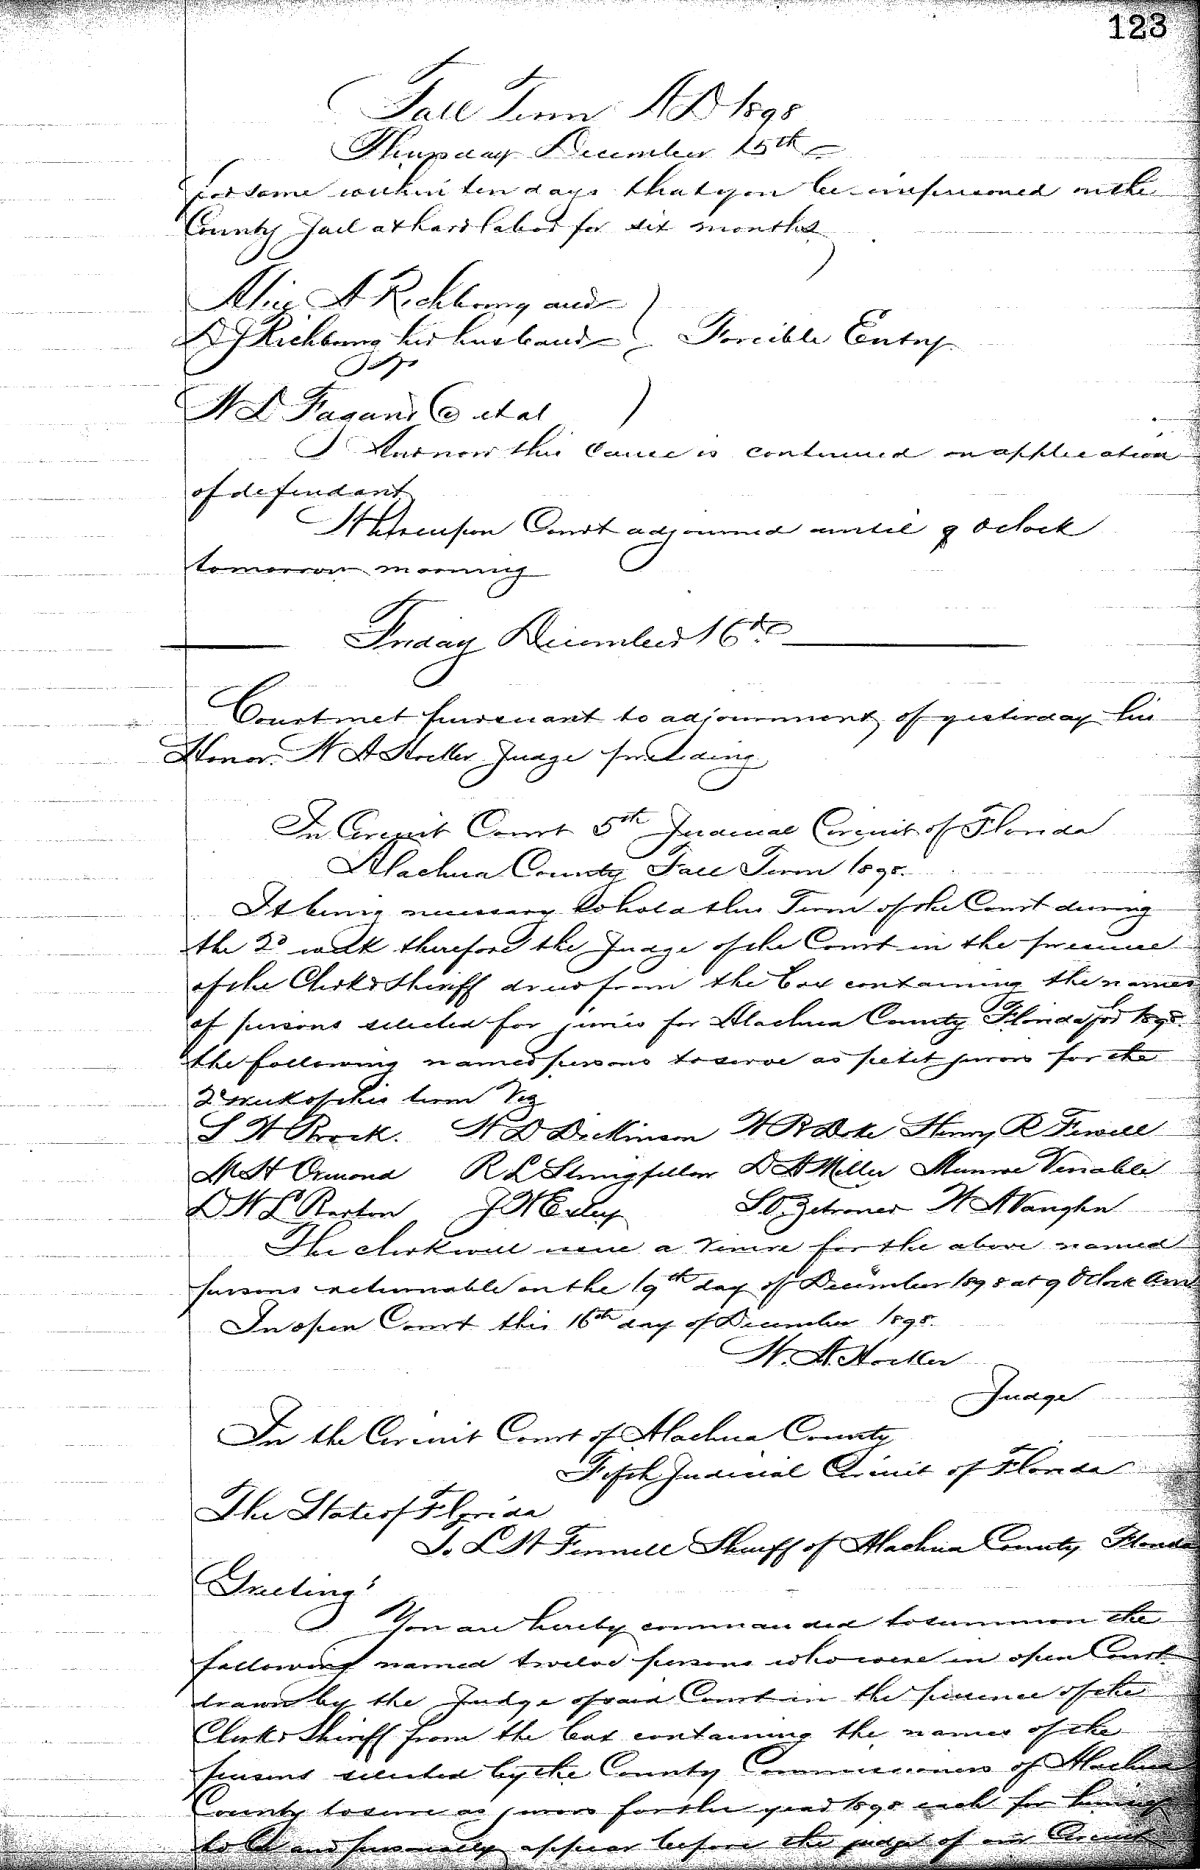 123
Fall Term A D 1898
Thursday December 15th
for same within ten days that you be imprisoned in the
County Jail at hard labor for six months
Alice A Richbourg and
D J Richbourg her husband Forcible Entry
vs
N L Fagan & Co et al
And now this cause is continued on application
of defendant
Whereupon Court adjourned until 9 Oclock
tomorrow morning
Friday December 16th
Court met pursuant to adjournment of yesterday his
Honor W A Hocker Judge presiding
In Circuit Court 5th Judicial Circuit of Florida
Alachua County Fall Term 1898.
It being necessary to hold this Term of the Court during
the 2d week therefore the Judge of the Court in the presence
of the Clerk & Sheriff drew from the box containing the names
of persons selected for juries for Alachua County Florida for 1898
the following named persons to serve as petit jurors for the
2 week of this term Viz
S H Brock. W D Dickinson W R Doke Henry R Fewell
M H Ormond R L Stringfellow D A Miller Munroe Venable
D W L Barton J W Exley S O Zetrouer W A Vaughn
The clerk will issue a Venire for the above named
persons returnable on the 19th day of December 1898 at 9 Oclock am
In open Court this 16th day of December 1898.
W. A. Hocker
Judge
In the Circuit Court of Alachua County
Fifth Judicial Circuit of Florida
The State of Florida
To L W Fennell Sheriff of Alachua County Florida
Greeting:
You are hereby commanded to summon the
following named twelve persons who were in open Court
drawn by the Judge of said Court in the presence of the
Clerk & Sheriff from the box containing the names of the
persons selected by the County Commissioners of Alachua
County to serve as jurors for the year 1898 each for
to be and personally appear before the judge of our Circuit